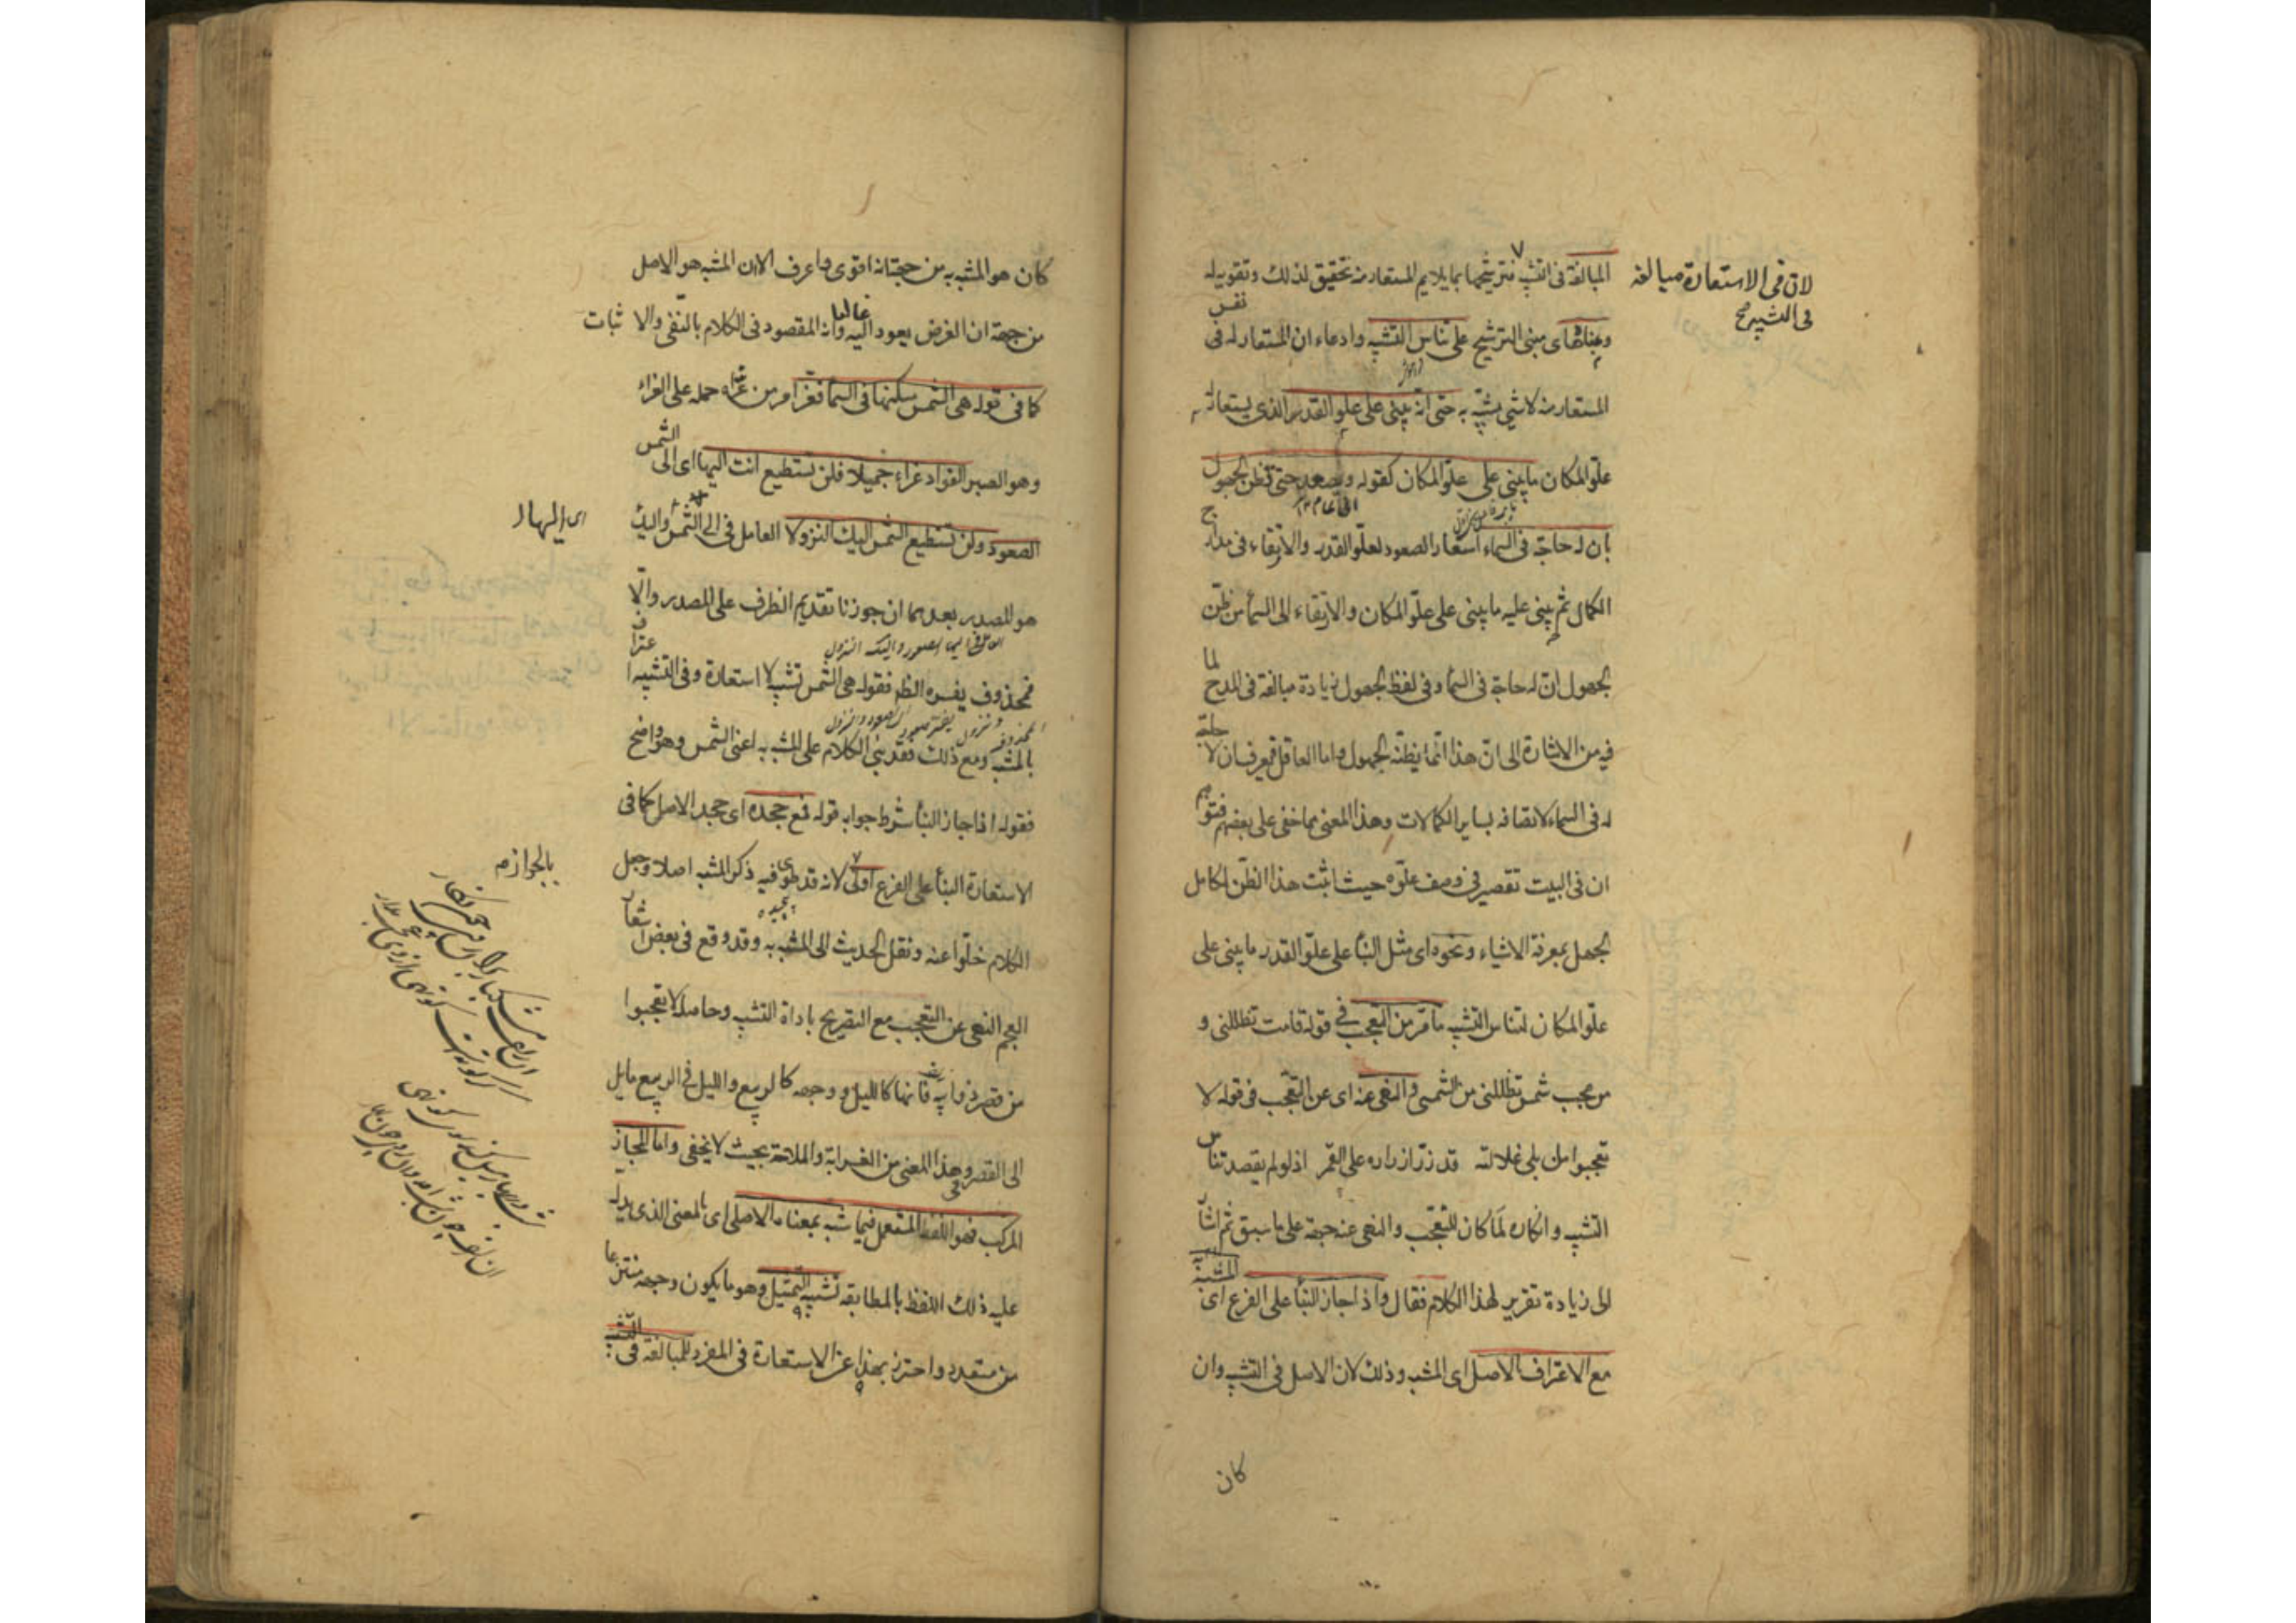 المبالغة فى التشبيه فترشيحها بما يلايم المستعار منه تحقيق لذلك وتقوية له
لان فى الاستعارة مبالغة
فى التشبيه صح
ومبناه اى مبنى الترشيح على تناسى التشبيه وادعاء ان المستعار له نفس
المستعار منه لا شئ شبيه به حتى انه يبنى على علو القدر الذى يستعار له
علو المكان ما يبنى على علو المكان كقوله ويصعد حتى يظن الجهول
بان له حاجة فى السماء استعار الصعود لعلو القدر والارتقاء فى مدارج
الكمال ثم بنى عليه ما يبنى على علو المكان والارتقاء الى السماء من ظن
الجهول ان له حاجة فى السماء وفى لفظ الجهول زيادة مبالغة فى المدح لما
فيه من الاشارة الى ان هذا انما يظنه الجهول واما العاقل فيعرف ان لا حاجة
له فى السماء لاتصافه بساير الكمالات وهذا المعنى مما خفى على بعضهم فتوهم
ان فى البيت تقصير فى وصف علوه حيث اثبت هذا الظن لكامل
الجهل بمعرفة الاشياء ونحوه اى مثل البناء على علو القدر ما يبنى على
علو المكان لتناسى التشبيه ما مر من التعجب فى قوله قامت تظللنى و
من عجب شمس تظللنى من الشمس والنهى عنه اى عن التعجب فى قوله لا
تعجبوا من بلى غلالته قد زر ازراره على القمر اذ لو لم يقصد تناسى
التشبيه وانكاره لما كان للتعجب والنهى عنه جهة على ما سبق ثم اشار
الى زيادة تقرير لهذا الكلام فقال واذا جاز البناء على الفرع اى المشبه به
مع الاعتراف بالاصل اى المشبه وذلك لان الاصل فى التشبيه وان
كان
كان هو المشبه به من جهة انه اقوى واعرف الا ان المشبه هو الاصل
من جهة ان الغرض يعود اليه غالبا وانه المقصود فى الكلام بالنفى والاثبات
كما فى قوله هى الشمس مسكنها فى السماء فعز امر من عزاه حمله على العزاء
وهو الصبر الفؤاد عزاء جميلا فلن تستطيع انت اليها اى الى الشمس
الصعود ولن تستطيع الشمس اليك النزولا العامل فى الى الشمس واليك
اى اليها
هو المصدر بعدهما ان جوزنا تقديم الظرف على المصدر والا
فمحذوف يفسره الظاهر فقوله هى الشمس تشبيه لا استعارة وفى التشبيه اعتراف
بالمشبه ومع ذلك فقد بنى الكلام على المشبه به اعنى الشمس وهو واضح
فقوله اذا جاز البناء شرط جوابه قوله فمع جحده اى جحد الاصل كما فى
الاستعارة البناء على الفرع اولى لانه قد طوى فيه ذكر المشبه اصلا وجعل
بالجواز
الكلام خلوا عنه ونقل الحديث الى المشبه به وقد وقع فى بعض اشعار
العجم النهى عن التعجب مع التصريح باداة التشبيه وحاصله لا تعجبوا
من قصر ذوايبه فانها كالليل ووجهه كالربيع والليل فى الربيع مايل
الى القصر وهذا المعنى من الغرابة والملاحة بحيث لا يخفى واما المجاز
المركب فهو اللفظ المستعمل فيما شبه بمعناه الاصلى اى بالمعنى الذى يدل
عليه ذلك اللفظ بالمطابقة تشبيه التمثيل وهو ما يكون وجهه منتزعا
من متعدد واحترز بهذا عن الاستعارة فى المفرد للمبالغة فى التشبيه